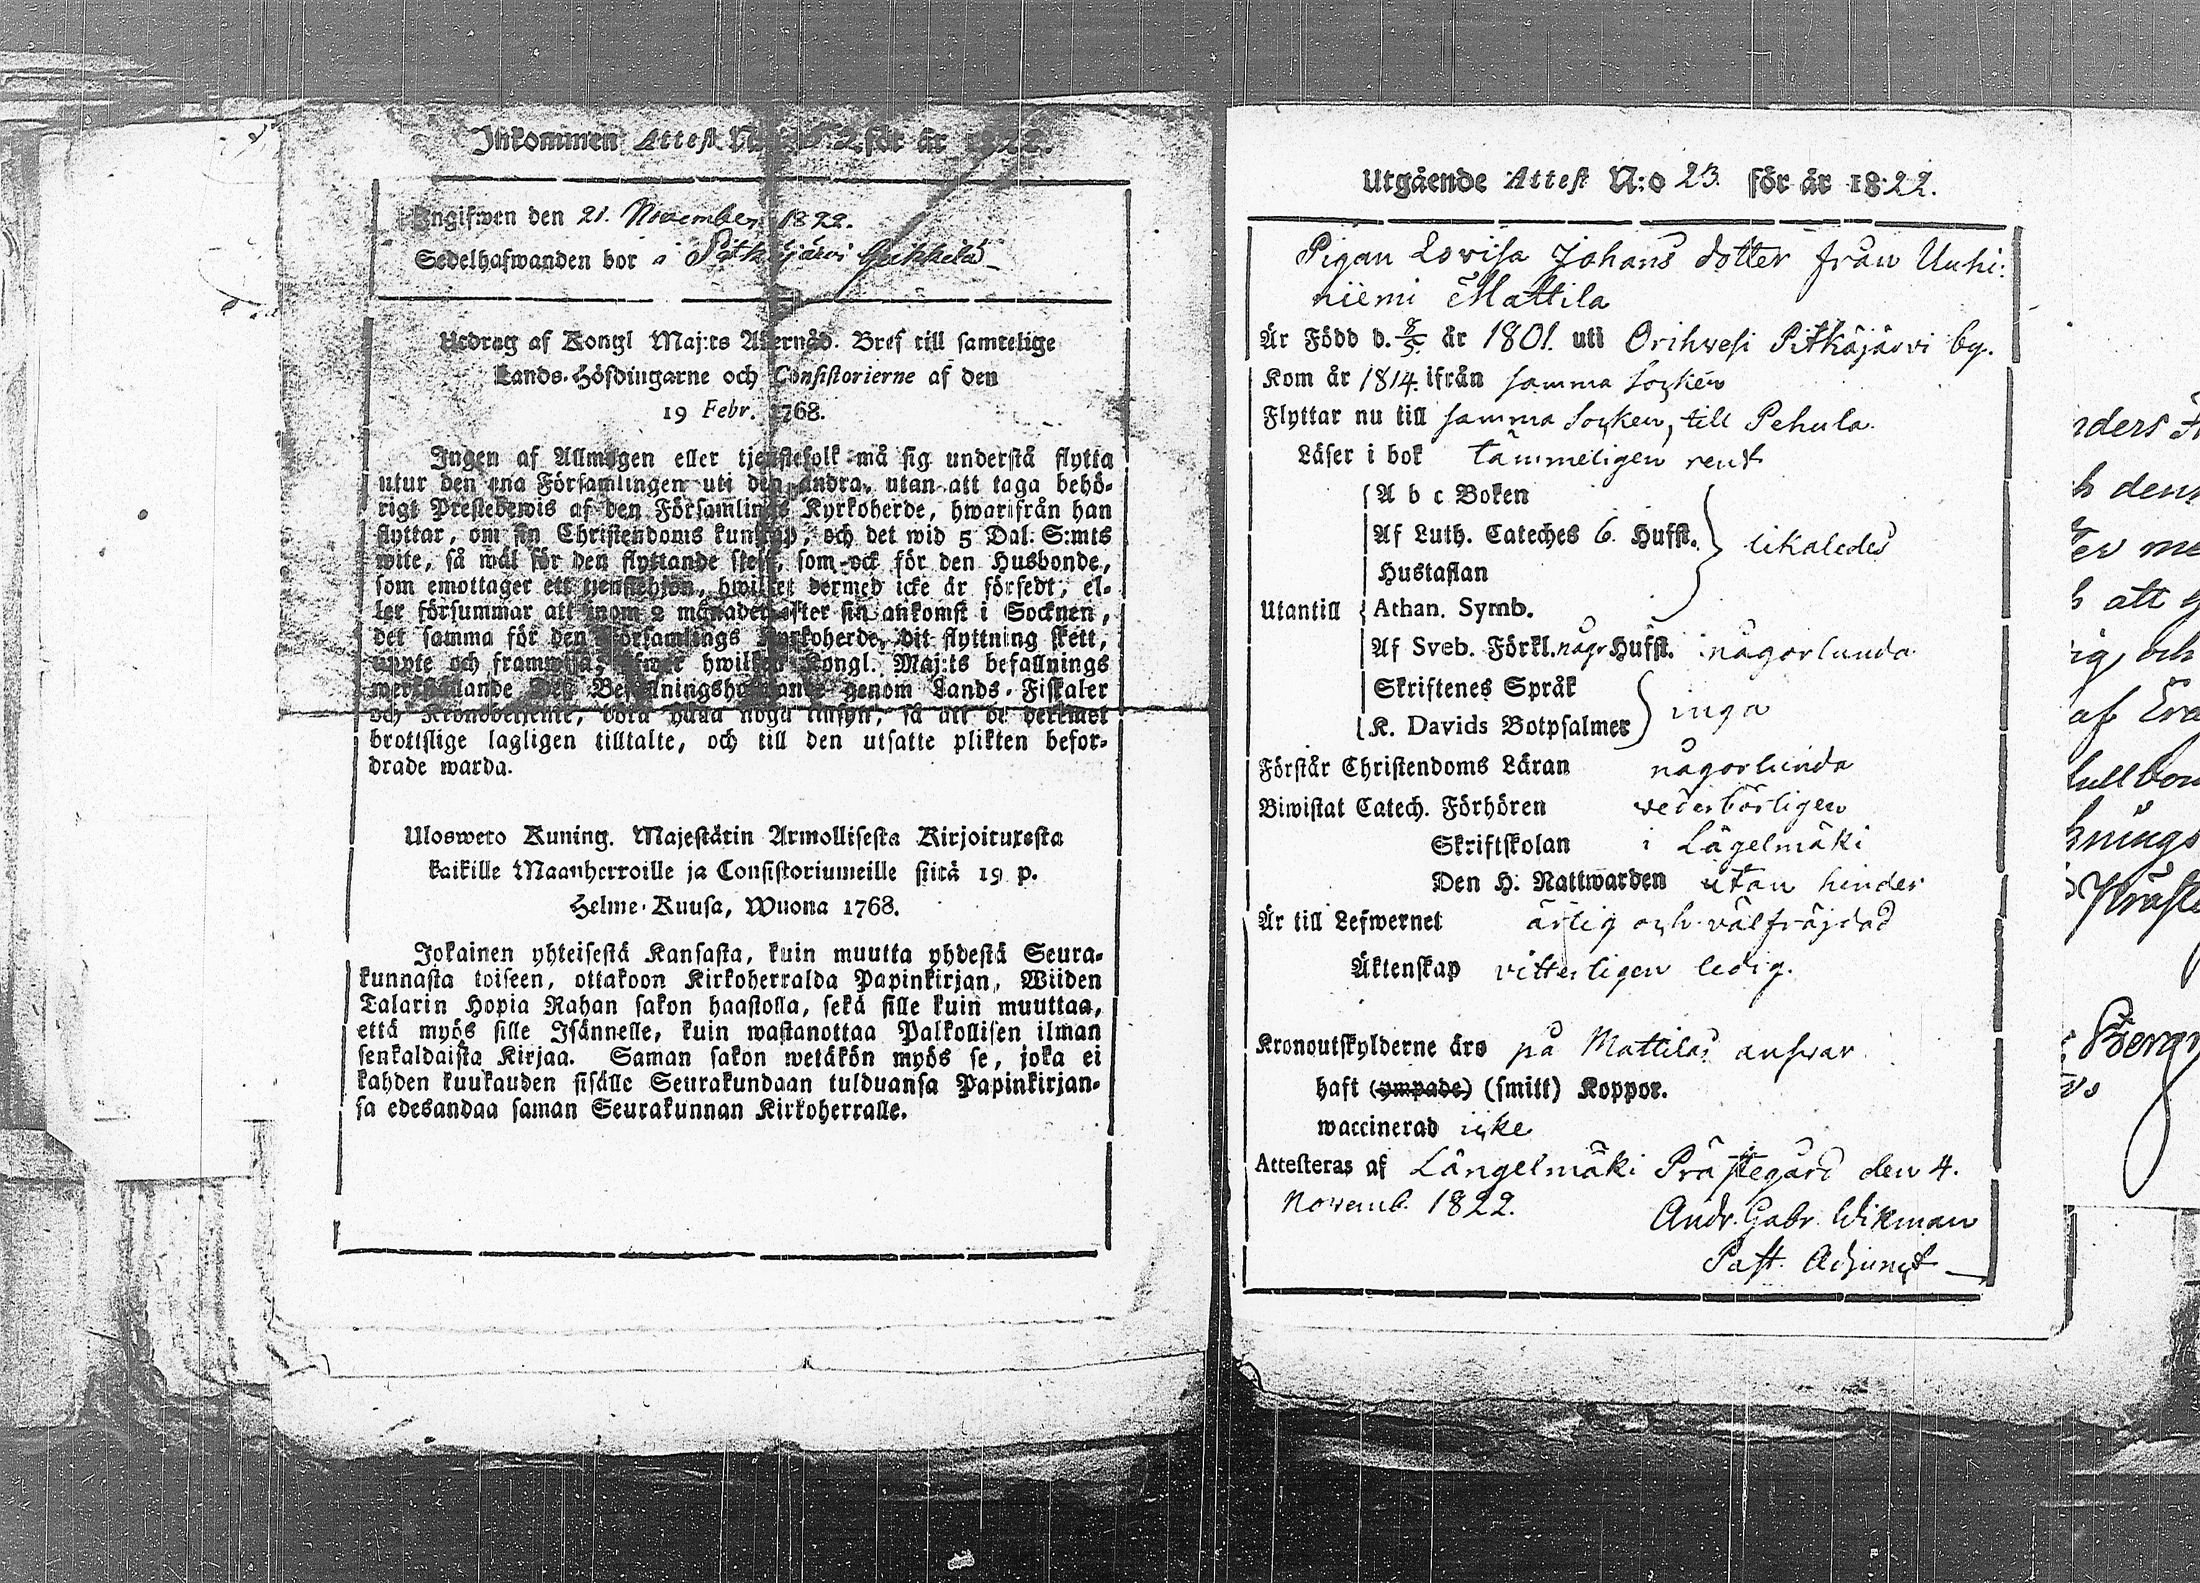 Inkommen Attest N:o för år 1822.
Angifwen den 21. November 1822.
Sedelhafwanden bor i Pitkäjärvi
Utdrag af Kongl Maj:ts Allernåd. Bref till samtelige
Lands-Höfdingarne och Consistorierne af den
19 Febr. 1768.
Ingen af Allmogen eller tjenstefolk må sig understå flytta
utur den ena Församlingen uti den andra, utan att taga behö-
rigt Prestebewis af den Församlings Kyrkoherde, hwarifrån han
flyttar, om sin Christendoms kunskap, och det wid 5 Dal. S:mts
wite, så wäl för den flyttande sielf, som ock för den Husbonde,
som emottager ett tjenstehjon, hwilket dermed icke är försedt, el-
ler försummar att inom 2 månader efter sin ankomst i Socknen,
det samma för den Församlings Kyrkoherde, dit flyttning skett,
uppte och framwisa, öfwer hwilken Kongl. Maj:ts befallnings
werkställande Des Befallningshafwande genom Lands-Fiskaler
och Kronobetjente, böra hafwa noga insyn, så att de deremot
brottslige lagligen tilltalte, och till den utsatte plikten befor-
drade warda.
Ulosweto Kuning. Majestätin Armollisesta Kirjoituxesta
kaikille Maanherroille ja Consistoriumeille siitä 19 p.
Helme-Kuusa, Wuona 1768.
Jokainen yhteisestä Kansasta, kuin muutta yhdestä Seura-
kunnasta toiseen, ottakoon Kirkoherralda Papinkirjan, Wiiden
Talarin Hopia Rahan sakon haastolla, sekä sille kuin muuttaa,
että myös sille Isännelle, kuin wastanottaa Palkollisen ilman
senkaldaista Kirjaa. Saman sakon wetäkön myös se, joka ei
kahden kuukauden sisälle Seurakundaan tulduansa Papinkirjan-
sa edesandaa saman Seurakunnan Kirkoherralle.
Utgående Attest N:o 23. för år 1822.
Pigan Lovisa Johans dotter från Uuhi-
niemi Mattila
Är Född d. 8/5 år 1801. uti Orihvesi Pitkäjärvi by.
Kom år 1814. ifrån samma Socken
Flyttar nu till samma Socken, till Pehula.
Läser i bok tämmeligen rent
A b c Boken
Af Luth. Cateches 6. Hufst. likaledes
Hustaflan
Utantill Athan. Symb.
Af Sveb. Förkl. någr Hufst. någorlunda
Skriftenes Språk
K. Davids Botpsalmer inga
Förstår Christendoms Läran någorlunda
Biwistat Catech. Förhören vederbörligen
Skriftskolan i Lägelmäki
Den H. Nattwarden utan hinder
Är till Lefwernet ärlig och välfräjdad
Äktenskap vitterligen ledig.
Kronoutskylderne äro på Mattilas answar
haft (ympade) (smitt) Koppor.
waccinerad icke
Attesteras af Längelmäki Prästegård den 4.
Novemb. 1822. Andr. Gabr. Wikman
Past. Adjunct
nders
h den
er me
h att
ig, och
af Era
full
knings